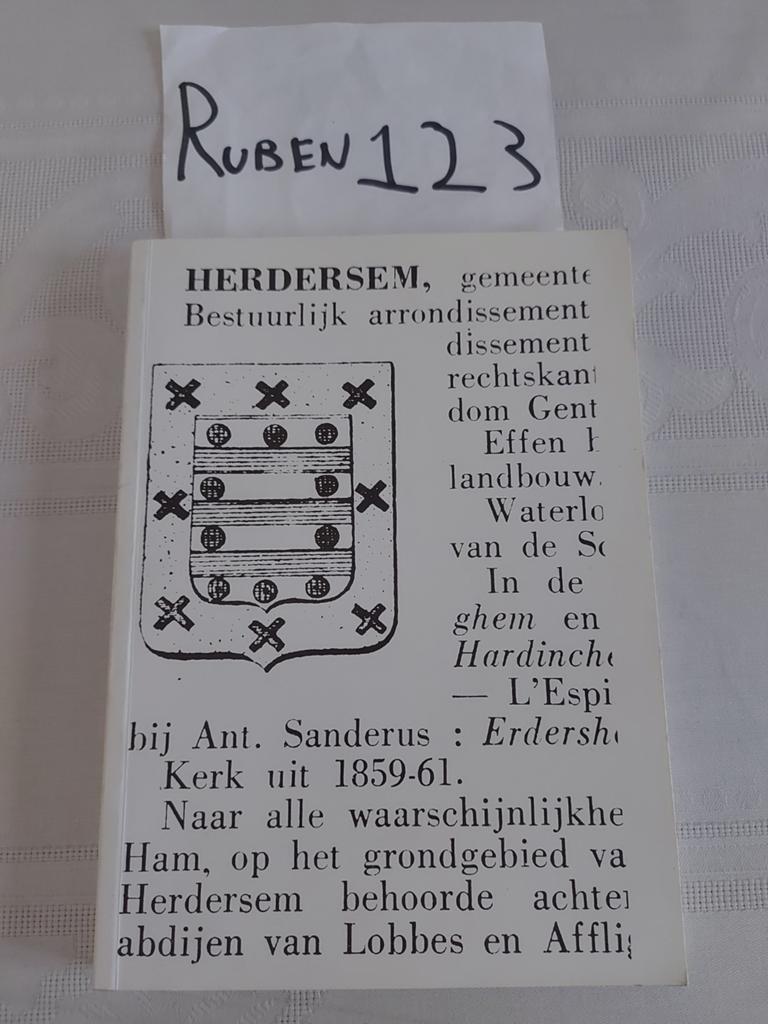 RUBEN 123
HERDERSEM, gemeente
Bestuurlijk arrondissement
dissement
rechtskan
dom Gent
Effen
landbouw.
Waterlo
van de Sc
In de
ghem en
Hardinche
— L'Espi
bij Ant. Sanderus : Erdersh
Kerk uit 1859-61.
Naar alle waarschijnlijkhe
Ham, op het grondgebied va
Herdersem behoorde achter
abdijen van Lobbes en Afflig